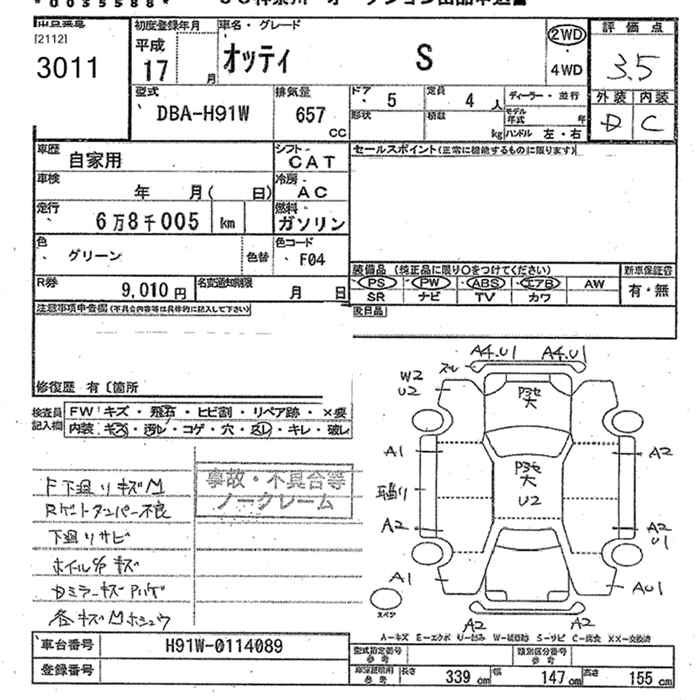 * 0 0 3 5 5 8 8 *
[2112]
3011
初度登録年月
平成
17 月
車名・グレード
オッティ S
2WD
4WD
評価点
3.5
外装 内装
D C
型式
DBA-H91W
排気量
657 CC
ドア 5
定員 4 人
形状
積載 kg
ディーラー・並行
モデル年式 年
ハンドル 左・右
車歴
自家用
シフト
CAT
セールスポイント(正常に機能するものに限ります)
車検
年 月( 日)
冷房
AC
走行
6万8千005 km
燃料
ガソリン
色
グリーン
色替
色コード
F04
R券
9,010 円
名変通知期限
月 日
装備品 (純正品に限り○をつけてください)
PS PW ABS エアB AW
SR ナビ TV カワ
新車保証書
有・無
注意事項申告欄(不具合内容等は具体的に記入して下さい)
後日品
修復歴 有〔箇所
検査員記入欄
FW キズ・飛石・ヒビ割・リペア跡・×要
内装 キズ・汚レ・コゲ・穴・スレ・キレ・破レ
F下廻りキズM
Rゲートダンパー不良
下廻りサビ
ホイルS/Cキズ
Dミラーキズハゲ
各キズMホシュウ
事故・不具合等
ノークレーム
A4.U1 A4.U1
スレ
W2
U2
P3セ
大
A1
A2
P3セ
大
U2
A2
A2
U1
A1
AU1
スペア
A2 A2
A-キズ E-エクボ U-凹み W-補修跡 S-サビ C-腐食 XX-交換済
車台番号
H91W-0114089
登録番号
型式指定番号
参考
類別区分番号
参考
参考
長さ 339 cm
幅 147 cm
高さ 155 cm